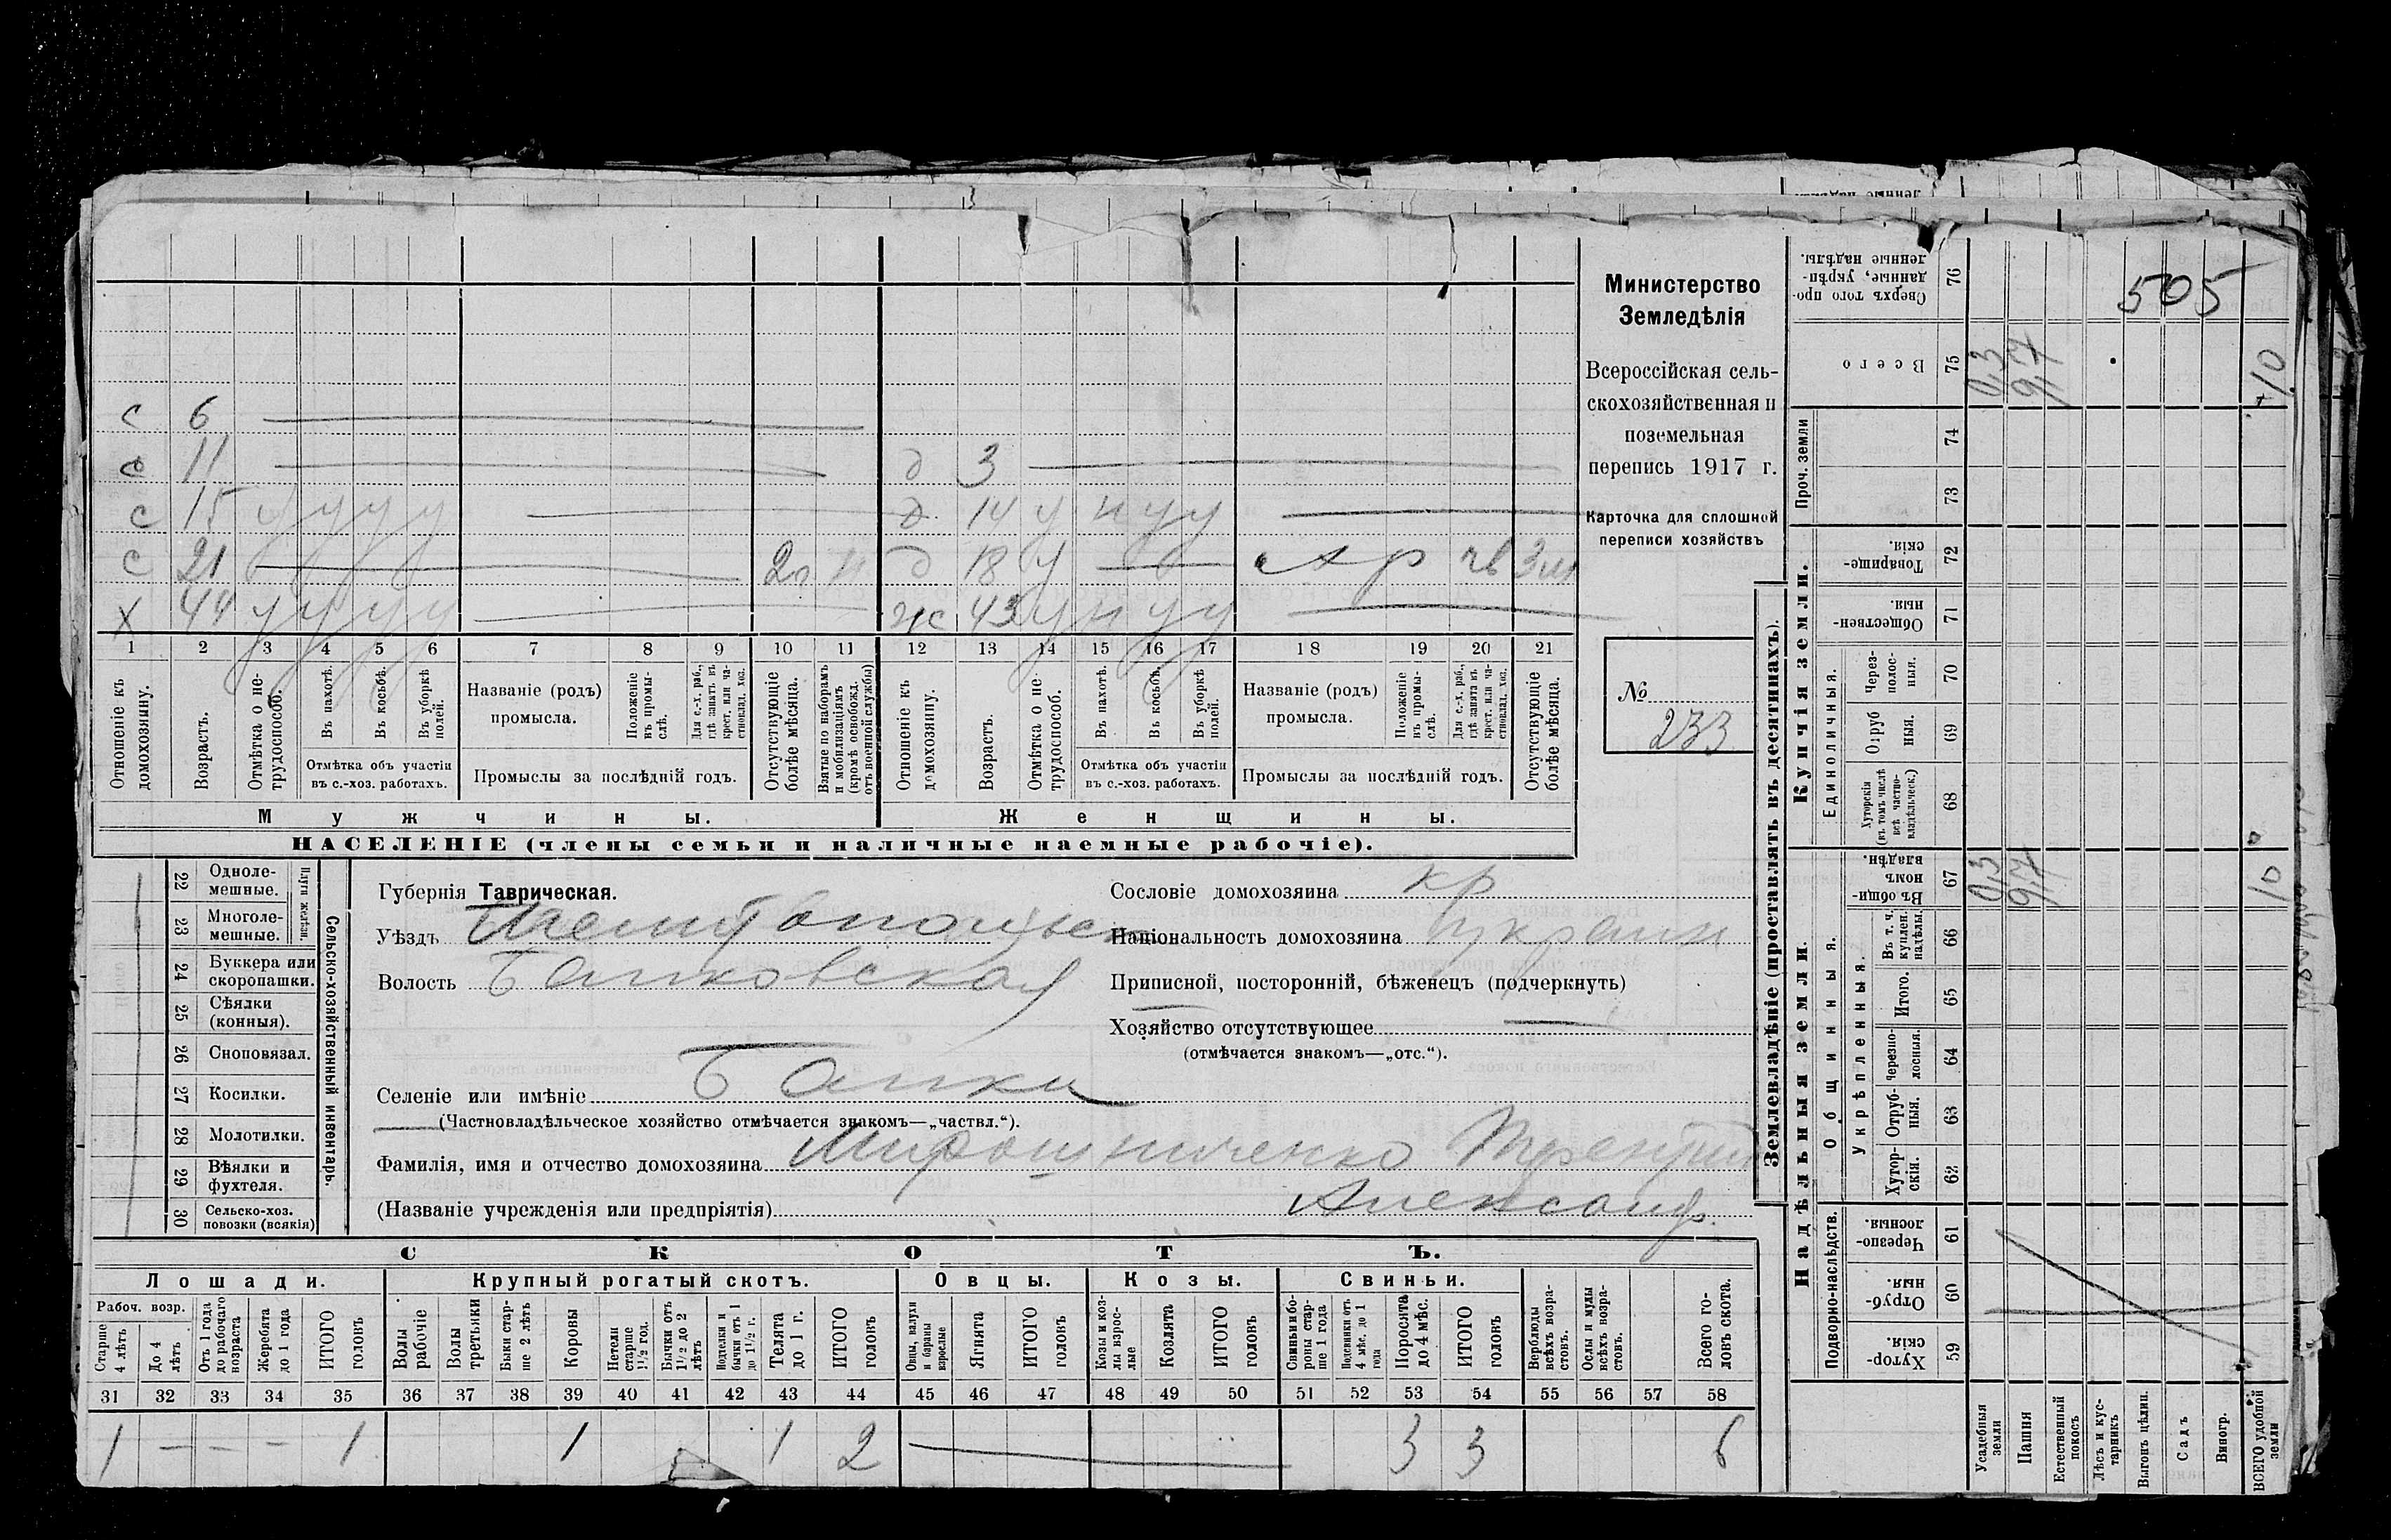 505
С 6
С 11 д 3
С 15 у у у у д 14 у н у у
С 21 2г д 18 у 3м
Х 44 у у у у ж 43 у н у у
1 2 3 4 5 6 7 8 9 10 11 12 13 14 15 16 17 18 19 20 21
Отношеніе къ домохозяину.
Возрастъ.
Отмѣтка о нетрудоспособ.
Въ пахотѣ.
Въ косьбѣ.
Въ уборкѣ полей.
Отмѣтка объ участіи въ с.-хоз. работахъ.
Названіе (родъ) промысла.
Положеніе въ промыслѣ.
Для с.-х. раб., гдѣ занятъ въ крест. или частновлад. хоз.
Промыслы за послѣдній годъ.
Отсутствующіе болѣе мѣсяца.
Взятые по наборамъ и мобилизаціямъ (кромѣ освобожд. отъ военной службы)
Отношеніе къ домохозяину.
Возрастъ.
Отмѣтка о нетрудоспособ.
Въ пахотѣ.
Въ косьбѣ.
Въ уборкѣ полей.
Отмѣтка объ участіи въ с.-хоз. работахъ.
Названіе (родъ) промысла.
Положеніе въ промыслѣ.
Для с.-х. раб., гдѣ занята въ крест. или частновлад. хоз.
Промыслы за послѣдній годъ.
Отсутствующіе болѣе мѣсяца.
Мужчины. Женщины.
НАСЕЛЕНІЕ (члены семьи и наличные наемные рабочіе).
Министерство
Земледѣлія
Всероссійская сель-
скохозяйственная и
поземельная
перепись 1917 г.
Карточка для сплошной
переписи хозяйствъ
№
233
22 Одноле-
мешные.
23 Многоле-
мешные.
Плуги желѣзн.
24 Буккера или
скоропашки.
25 Сѣялки
(конныя).
26 Сноповязал.
27 Косилки.
28 Молотилки.
29 Вѣялки и
фухтеля.
30 Сельско-хоз.
повозки (всякія)
Сельско-хозяйственный инвентарь.
Губернія Таврическая.
Уѣздъ Мелитопольск
Волость Балковская
Селеніе или имѣніе Балки
(Частновладѣльческое хозяйство отмѣчается знакомъ—„частвл.“).
Фамилія, имя и отчество домохозяина Мирошниченко Терентій
(Названіе учрежденія или предпріятія) Александр.
Сословіе домохозяина кр
Національность домохозяина украин
Приписной, посторонній, бѣженецъ (подчеркнуть)
Хозяйство отсутствующее
(отмѣчается знакомъ—„отс.“).
СКОТЪ.
Лошади. Крупный рогатый скотъ. Овцы. Козы. Свиньи.
Рабоч. возр.
Старше 4 лѣтъ
До 4 лѣтъ
Отъ 1 года до рабочаго возраста
Жеребята до 1 года
ИТОГО головъ
Волы рабочіе
Волы третьяки
Быки старше 2 лѣтъ
Коровы
Нетели старше 1½ год.
Бычки отъ 1½ до 2 лѣтъ
Подтелки и бычки отъ 1 до 1½ г.
Телята до 1 г.
ИТОГО головъ
Овцы, валухи и бараны взрослые
Ягнята
ИТОГО головъ
Козы и козлы взрослые
Козлята
ИТОГО головъ
Свиньи и бороны старше 1 года
Подсвинки отъ 4 мѣс. до 1 года
Поросята до 4 мѣс.
ИТОГО головъ
Верблюды всѣхъ возрастовъ.
Ослы и мулы всѣхъ возрастовъ.
Всего головъ скота.
31 32 33 34 35 36 37 38 39 40 41 42 43 44 45 46 47 48 49 50 51 52 53 54 55 56 57 58
1 — — — 1 1 1 2 3 3 6
Землевладѣніе (проставлять въ десятинахъ).
Сверхъ того проданные, укрѣпленные надѣлы. 76
Всего 75 0,3 9,7 10
Проч. земли 74 73
Купчія земли.
Товарищескія. 72
Общественныя. 71
Единоличныя.
Черезполосныя. 70
Отрубныя. 69
Хуторскія (въ томъ числѣ всѣ частновладѣльческ.) 68
Надѣльныя земли.
Общинныя.
Въ общинномъ владѣн. 67 0,3 9,7 10
Укрѣпленныя.
Въ т. ч. куплен. надѣлы. 66
Итого. 65
Черезполосныя. 64
Отрубныя. 63
Хуторскія. 62
Подворно-наслѣдств.
Черезполосныя. 61
Отрубныя. 60
Хуторскія 59
Усадебныя земли
Пашня
Естественный покосъ
Лѣсъ и кустарникъ
Выгонъ цѣлин.
Садъ
Виногр.
ВСЕГО удобной земли